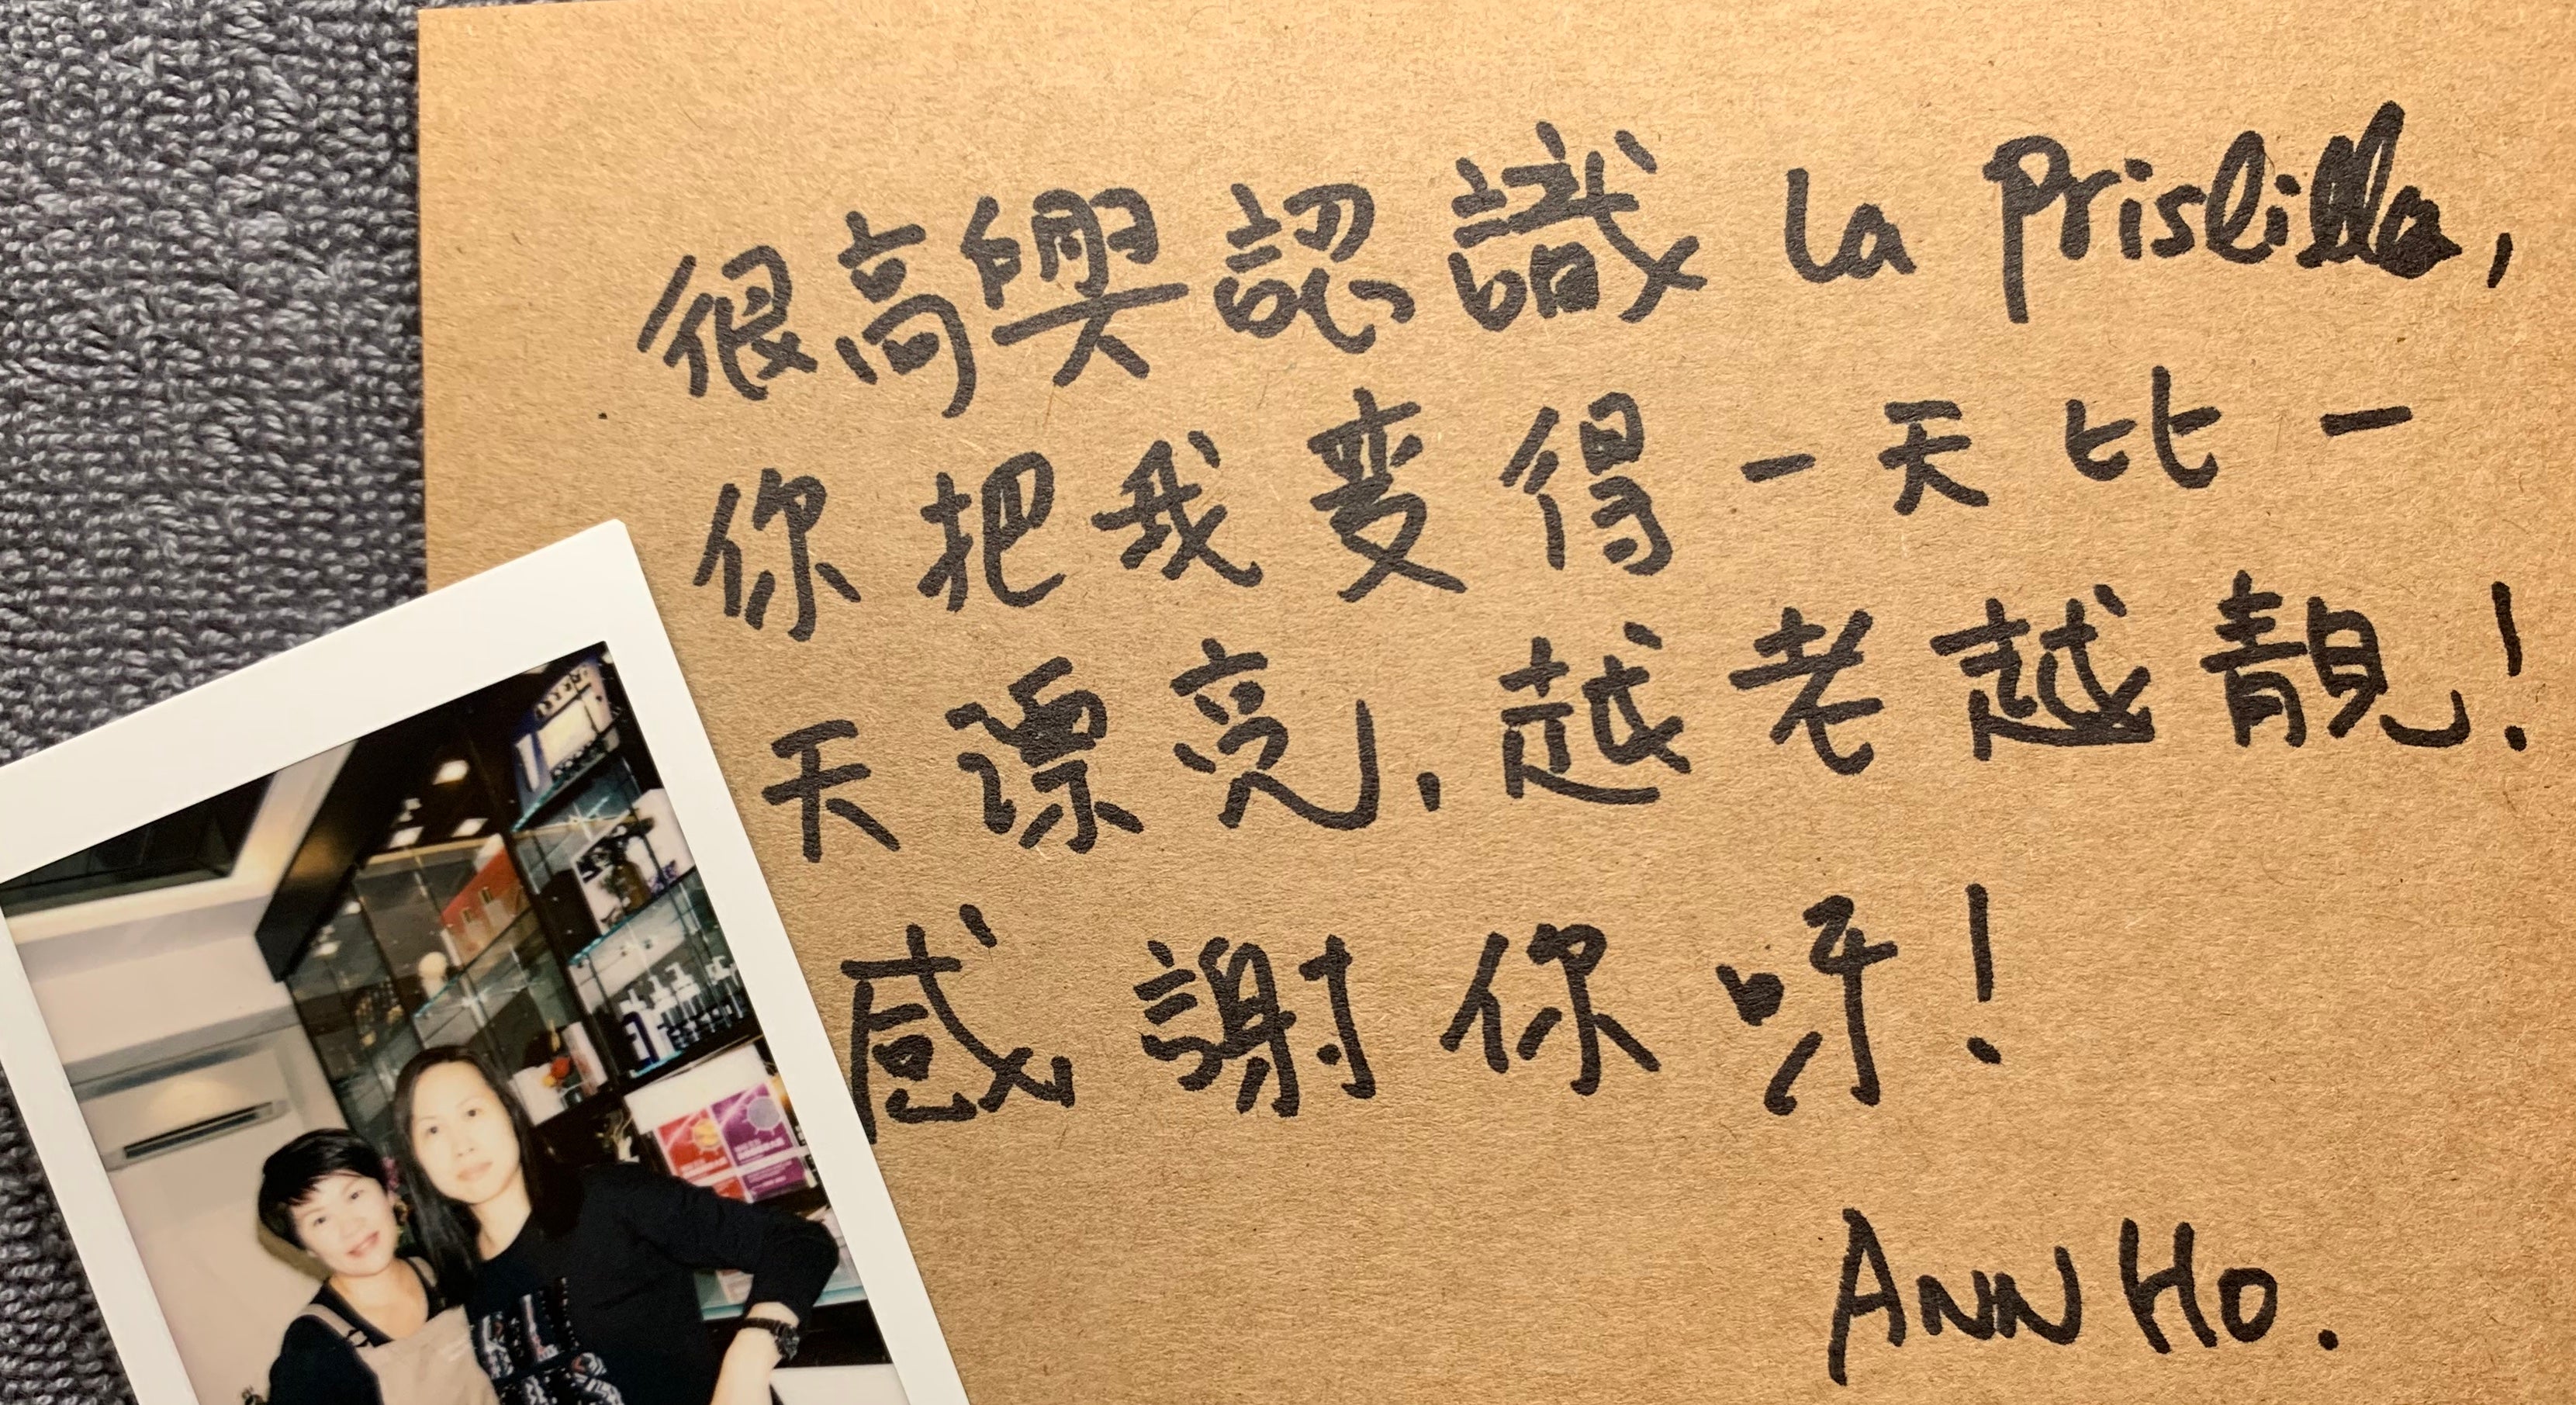 很高興認識 La Prislilla,
你把我變得一天比一
天漂亮,越老越靚!
感謝你呀!
ANN HO.